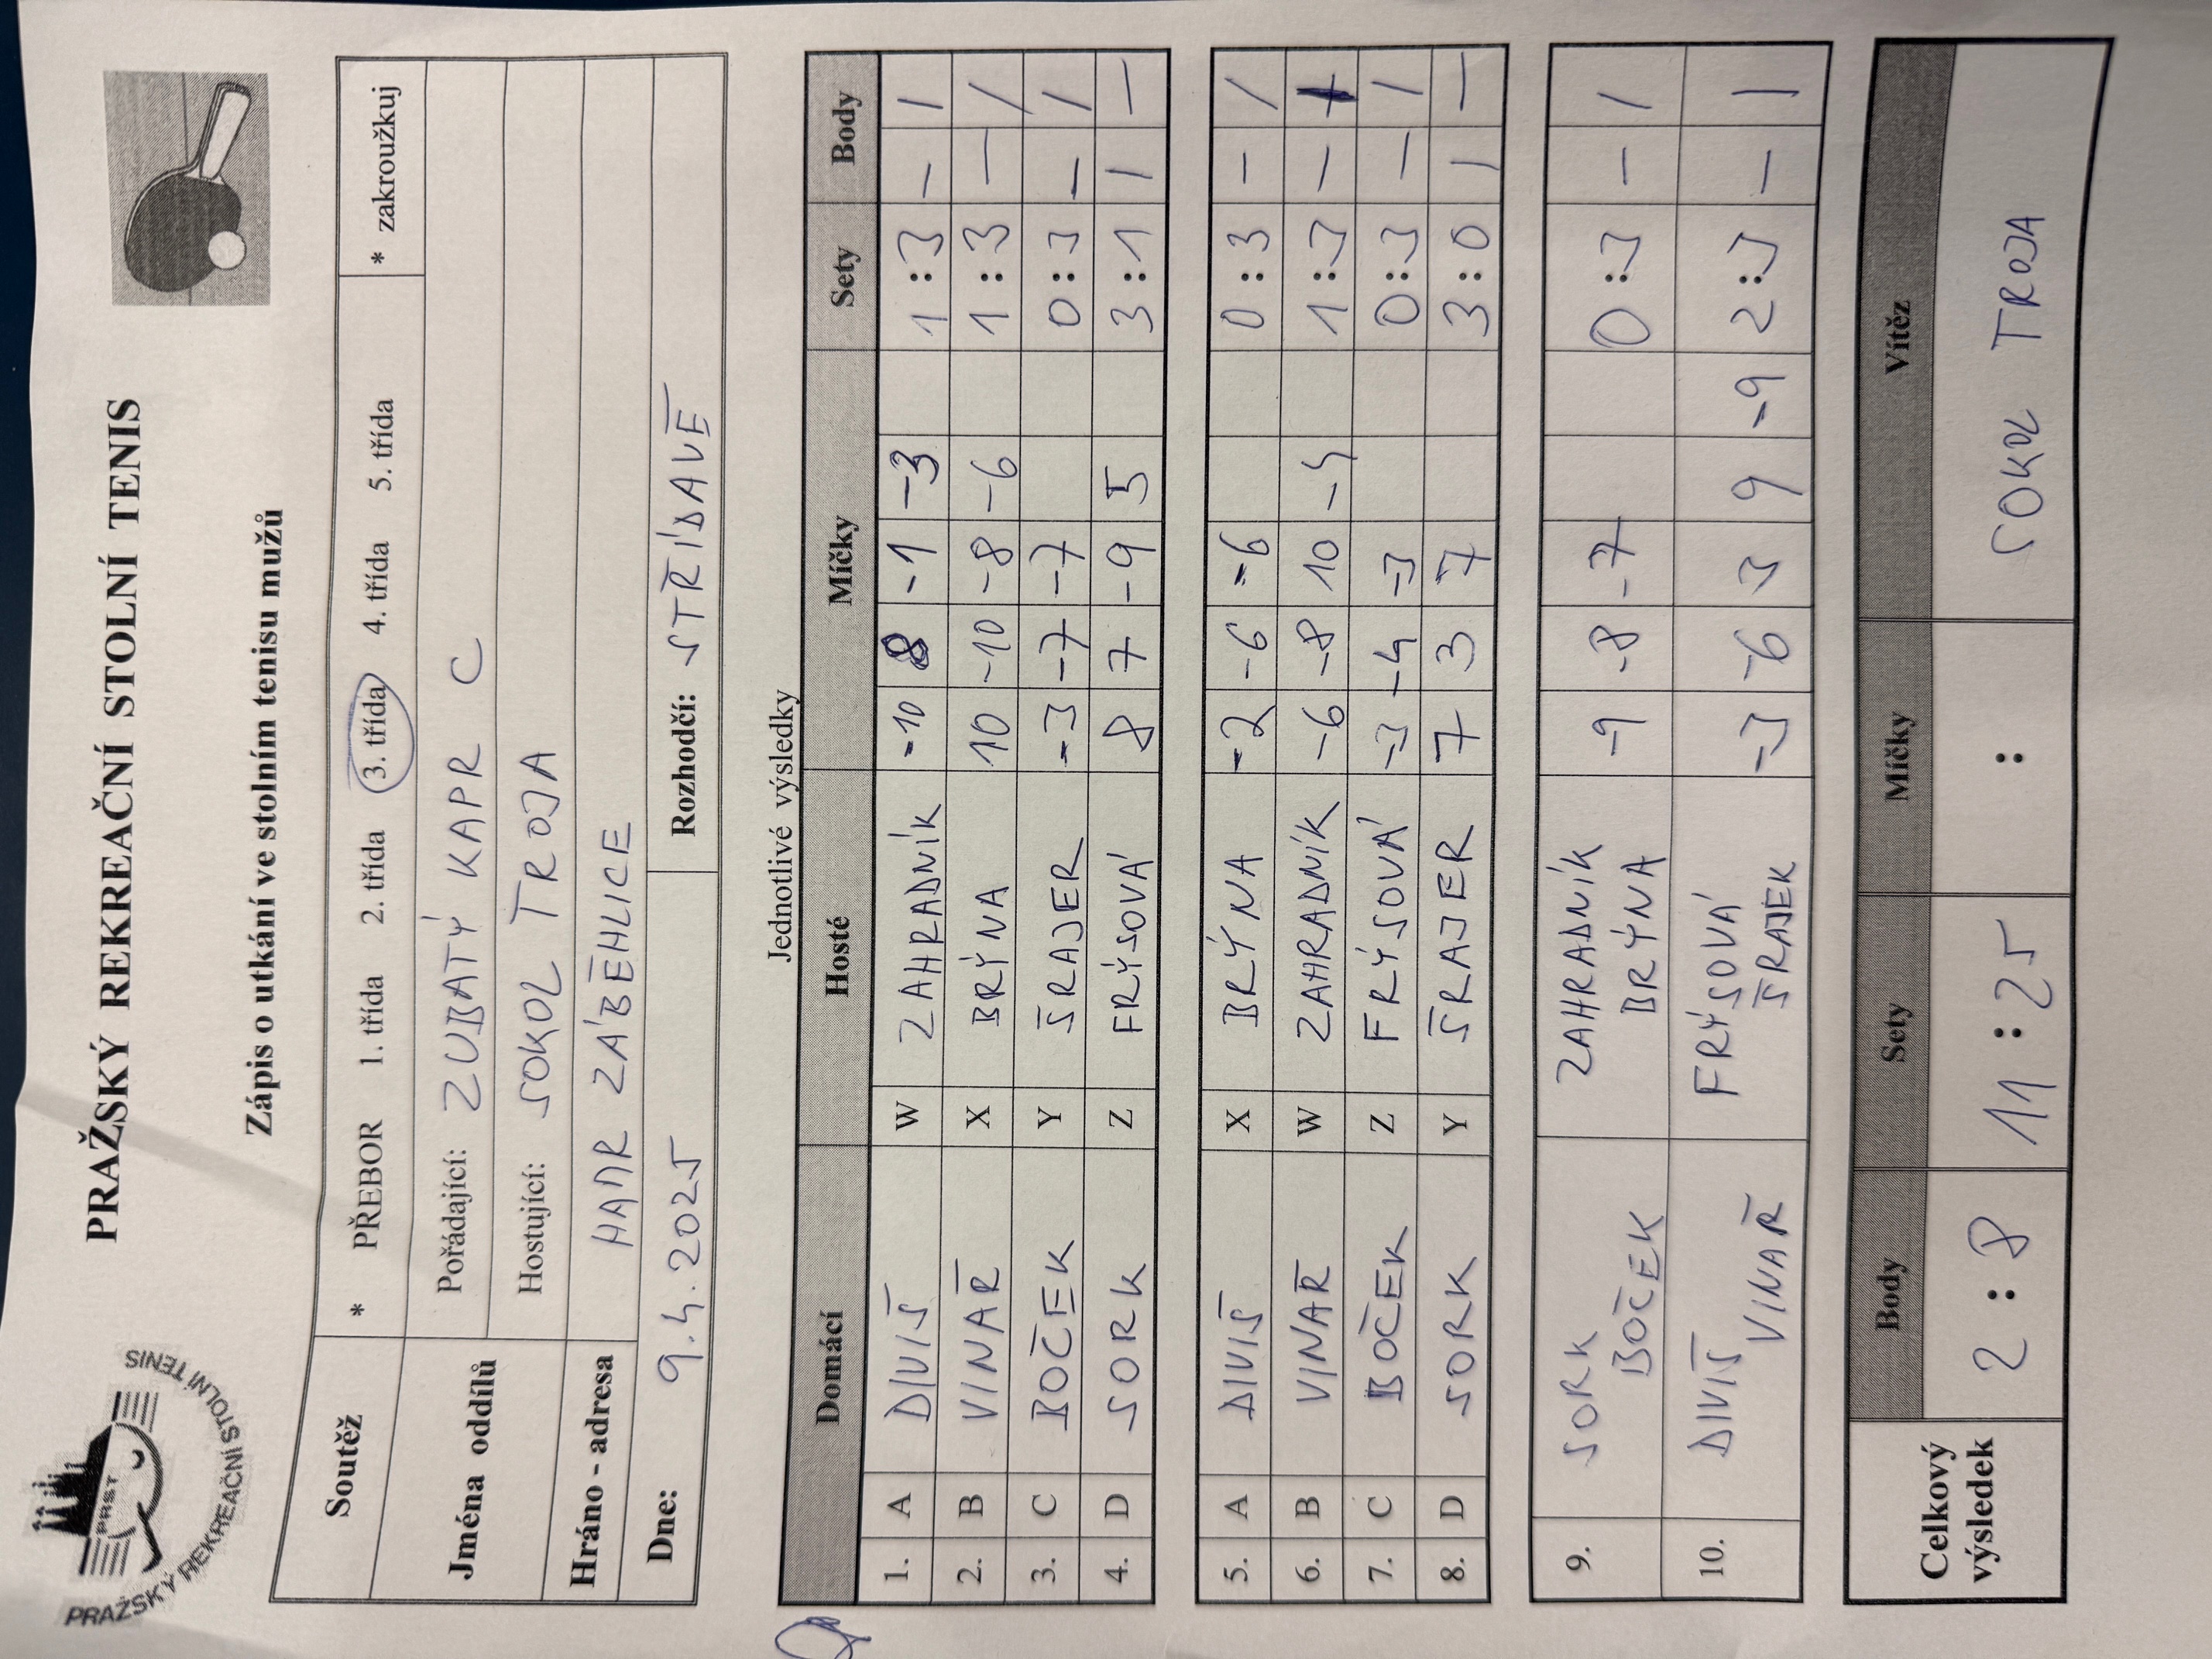 PRAŽSKÝ REKREAČNÍ STOLNÍ TENIS
PRST
PRAŽSKÝ REKREAČNÍ STOLNÍ TENIS
Zápis o utkání ve stolním tenisu mužů
Soutěž * PŘEBOR 1. třída 2. třída 3. třída 4. třída 5. třída * zakroužkuj
Jména oddílů Pořádající: ZUBATÝ KAPR C
Hostující: SOKOL TROJA
Hráno - adresa HAMR ZÁBĚHLICE
Dne: 9.4.2025 Rozhodčí: STŘÍDAVĚ
Jednotlivé výsledky
Domácí Hosté Míčky Sety Body
1. A DIVIŠ W ZAHRADNÍK -10 8 -1 -3 1:3 - 1
2. B VINAŘ X BRÝNA 10 -10 -8 -6 1:3 - 1
3. C BOČEK Y ŠRAJER -3 -7 -7 0:3 - 1
4. D SORK Z FRÝSOVÁ 8 7 -9 5 3:1 1 -
5. A DIVIŠ X BRÝNA -2 -6 -6 0:3 - 1
6. B VINAŘ W ZAHRADNÍK -6 -8 10 -4 1:3 - 1
7. C BOČEK Z FRÝSOVÁ -3 -4 -3 0:3 - 1
8. D SORK Y ŠRAJER 7 3 7 3:0 1 -
9. SORK ZAHRADNÍK -9 -8 -7 0:3 - 1
BOČEK BRÝNA
10. DIVIŠ FRÝSOVÁ -3 -6 3 9 -9 2:3 - 1
VINAŘ ŠRAJEK
Celkový výsledek Body Sety Míčky Vítěz
2:8 11:25 : SOKOL TROJA